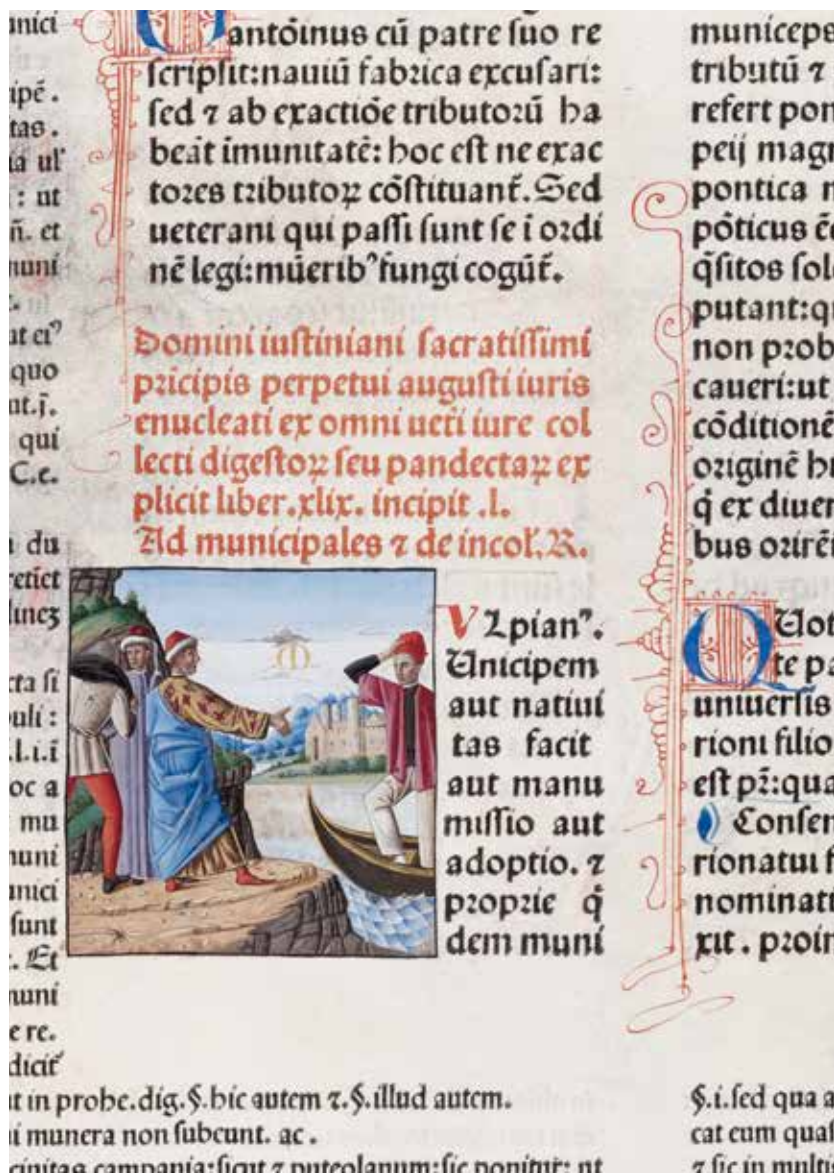 unici
ipē.
tas.
a ul'
: ut
ñ. et
nuni
at ei⁹
quo
ut.j̄.
qui
C.e.
du
retict
lincz
cta si
puli :
.l.i.ī
oc a
mu
nuni
unici
sunt
. Et
nuni
e re.
dicit
M antōinus cū patre suo re
scripsit:nauiū fabrica excusari:
sed ⁊ ab exactiōe tributorū ha
beāt imunitatē: hoc est ne exac
tores tributoꝝ cōstituant̄. Sed
ueterani qui passi sunt se ī ordi
nē legi:mūerib⁹ fungi cogūt̄.
Domini iustiniani sacratissimi
prīcipis perpetui augusti iuris
enucleati ex omni uet̄i iure col
lecti digestoꝝ seu pandectaꝝ ex
plicit liber.xlix. incipit .l.
Ad municipales ⁊ de incol'. R.
M
Vlpian⁹.
Unicipem
aut natiui
tas facit
aut manu
missio aut
adoptio. ⁊
proprie q̄
dem muni
municeps
tributū ⁊
refert pon
peij magn
pontica n
pōticus ēc
q̄sitos sol
putant:qu
non prob
caueri:ut
cōditionē
originē hi
q̄ ex diuer
bus orirēi
QUot
te pa
uniuersis
rioni filio
est pr̄:qua
Consen
rionatui f
nominati
xit. proin
ut in probe.dig.§.hic autem ⁊.§.illud autem.
i munera non subeunt. ac .
cinitas campania:sicut ⁊ puteolanum:sic ponitur̄: ut
§.i.sed qua a
cat eum qual
⁊ sic in multi